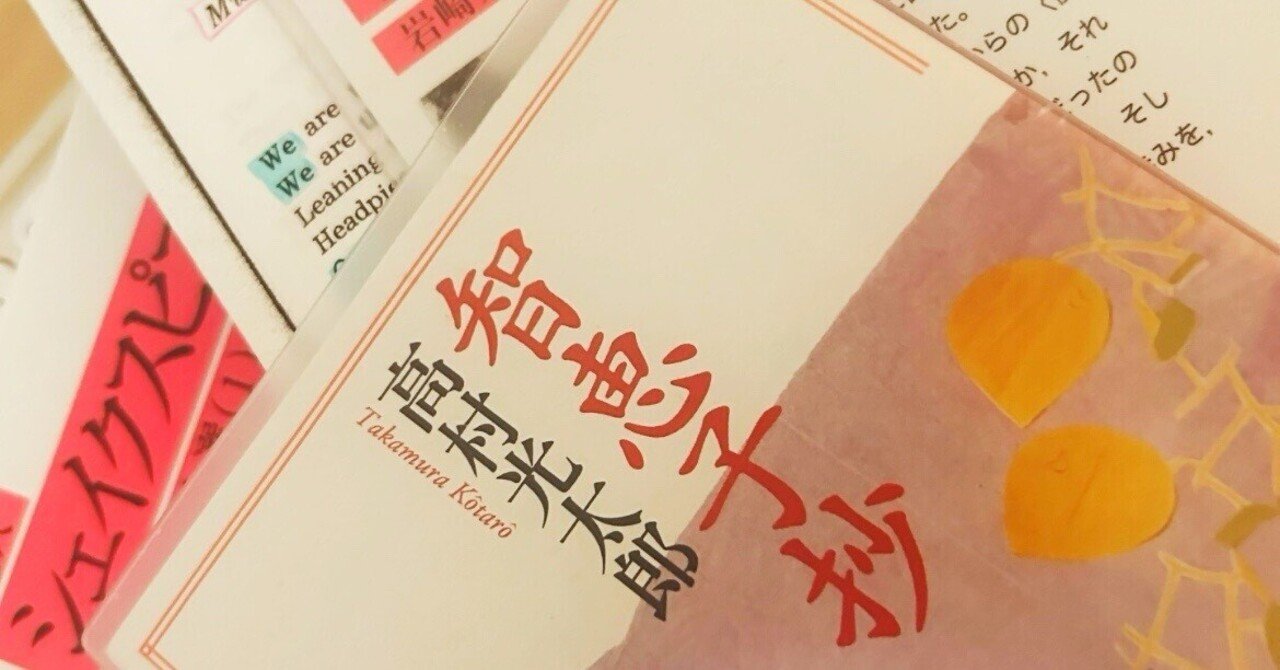 智恵子抄
高村光太郎
Takamura Kôtarô
We are
We are
Leaning
シェイクスピ
岩崎
た。
らの
か，それ
ったの
そし
みを，